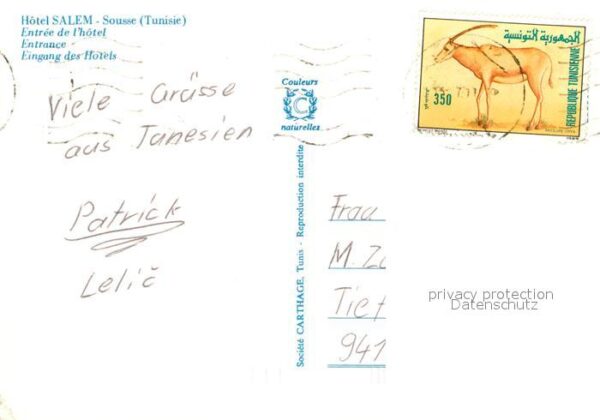 Hôtel SALEM - Sousse (Tunisie)
Entrée de l'hôtel
Entrance
Eingang des Hotels
Viele Grüsse
aus Tunesien
Patrick
Lelič
Couleurs
C
naturelles
Société CARTHAGE, Tunis - Reproduction interdite
الجمهورية التونسية
350
REPUBLIQUE TUNISIENNE
Frau
M. Zo
Tief
941
privacy protection
Datenschutz